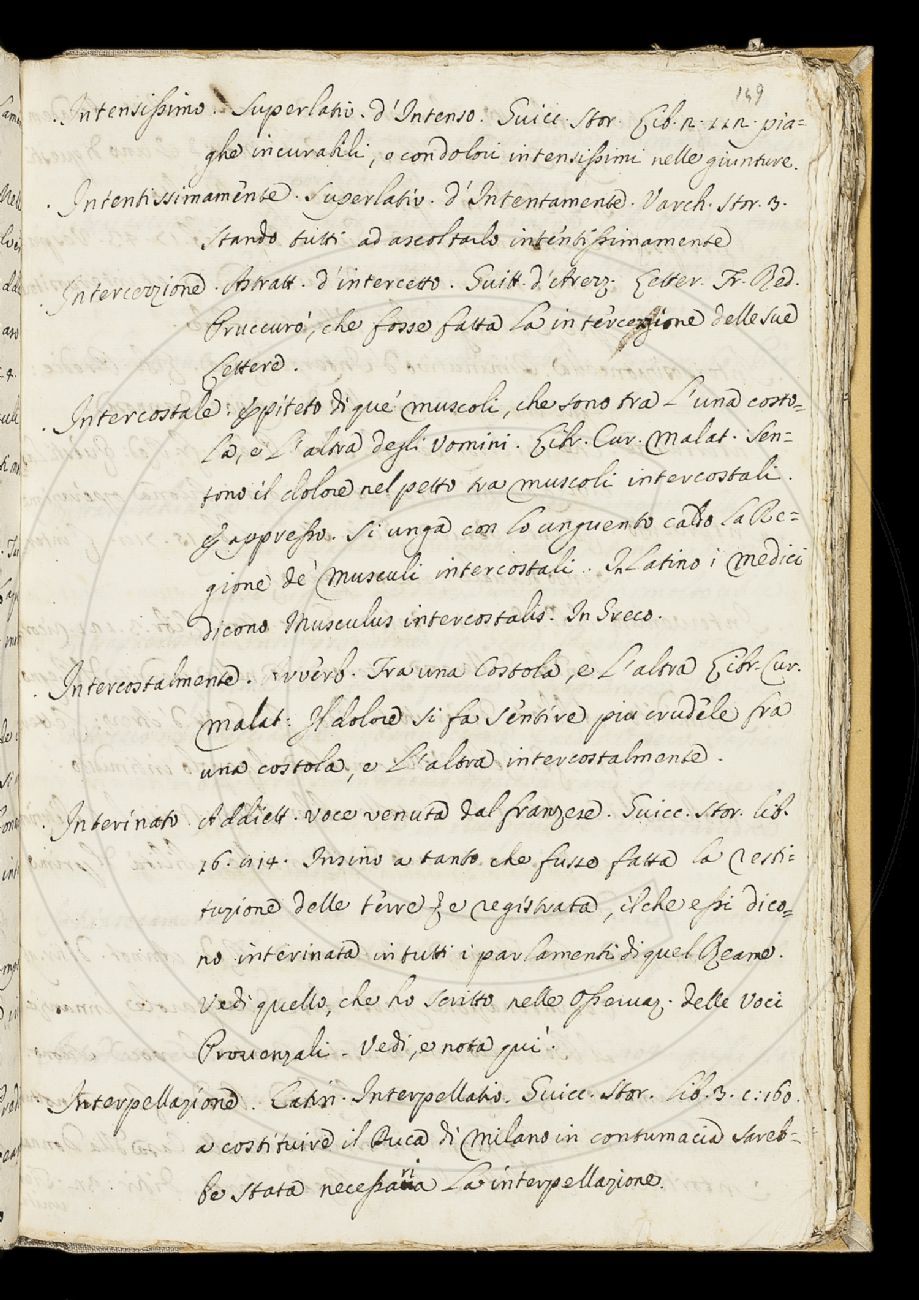 149
Intensissimo. Superlativ. d'Intenso. Guicc. Stor. Lib. 2. 112. pia=
ghe incurabili, o con dolori intensissimi nelle giunture.
Intentissimamente. Superlativ. d'Intentamente. Varch. Stor. 3.
Stando tutti ad ascoltarlo intentissimamente
Intercezzione. Astratt. d'intercetto. Guitt. d'Arezz. Letter. Fr. Red.
Proccurò, che fosse fatta la intercezzione delle sue
Lettere.
Intercostale: Eppiteto di que' muscoli, che sono tra l'una costo=
la, e l'altra degli Vomini. Libr. Cur. Malat. Sen=
tono il dolore nel petto tra muscoli intercostali.
E appresso. Si unga con lo unguento caldo la Re=
gione de' Musculi intercostali. In Latino i Medici
dicono Musculus intercostalis. In Greco.
Intercostalmente. Avverb. Tra una Costola, e l'altra Libr. Cur.
malat: Il dolore si fa sentire piu crudele fra
una costola, e l'altra intercostalmente.
Interinato. Addiett. voce venuta dal franzese. Guicc. Stor. lib.
16. 114. Insino a tanto che fusse fatta la resti=
tuzione delle terre e registrata, il che essi dico=
no interinata in tutti i parlamenti di quel Reame.
Vedi quello, che ho scritto nelle Osservaz. delle Voci
Provenzali. Vedi, e nota qui.
Interpellazione. Latin. Interpellatio. Guicc. Stor. Lib. 3. c: 160.
a costituire il Duca di Milano in contumacia sareb=
be stata necessaria La interpellazione.